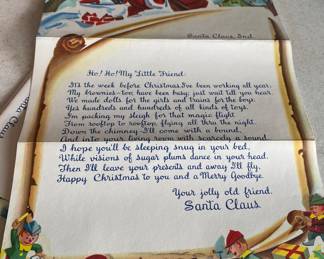 Santa Claus, Ind.
Ho! Ho! My Little Friend:
It's the week before Christmas. I've been working all year;
My brownies-too, have been busy; just wait till you hear.
We made dolls for the girls and trains for the boys.
Yes hundreds and hundreds of all kinds of toys.
I'm packing my sleigh for that magic flight
From rooftop to rooftop, flying all thru the night.
Down the chimney I'll come with a bound,
And into your living room with scarcely a sound.
I hope you'll be sleeping snug in your bed,
While visions of sugar plums dance in your head.
Then I'll leave your presents and away I'll fly,
Happy Christmas to you and a Merry Goodbye.
Your jolly old friend,
Santa Claus.